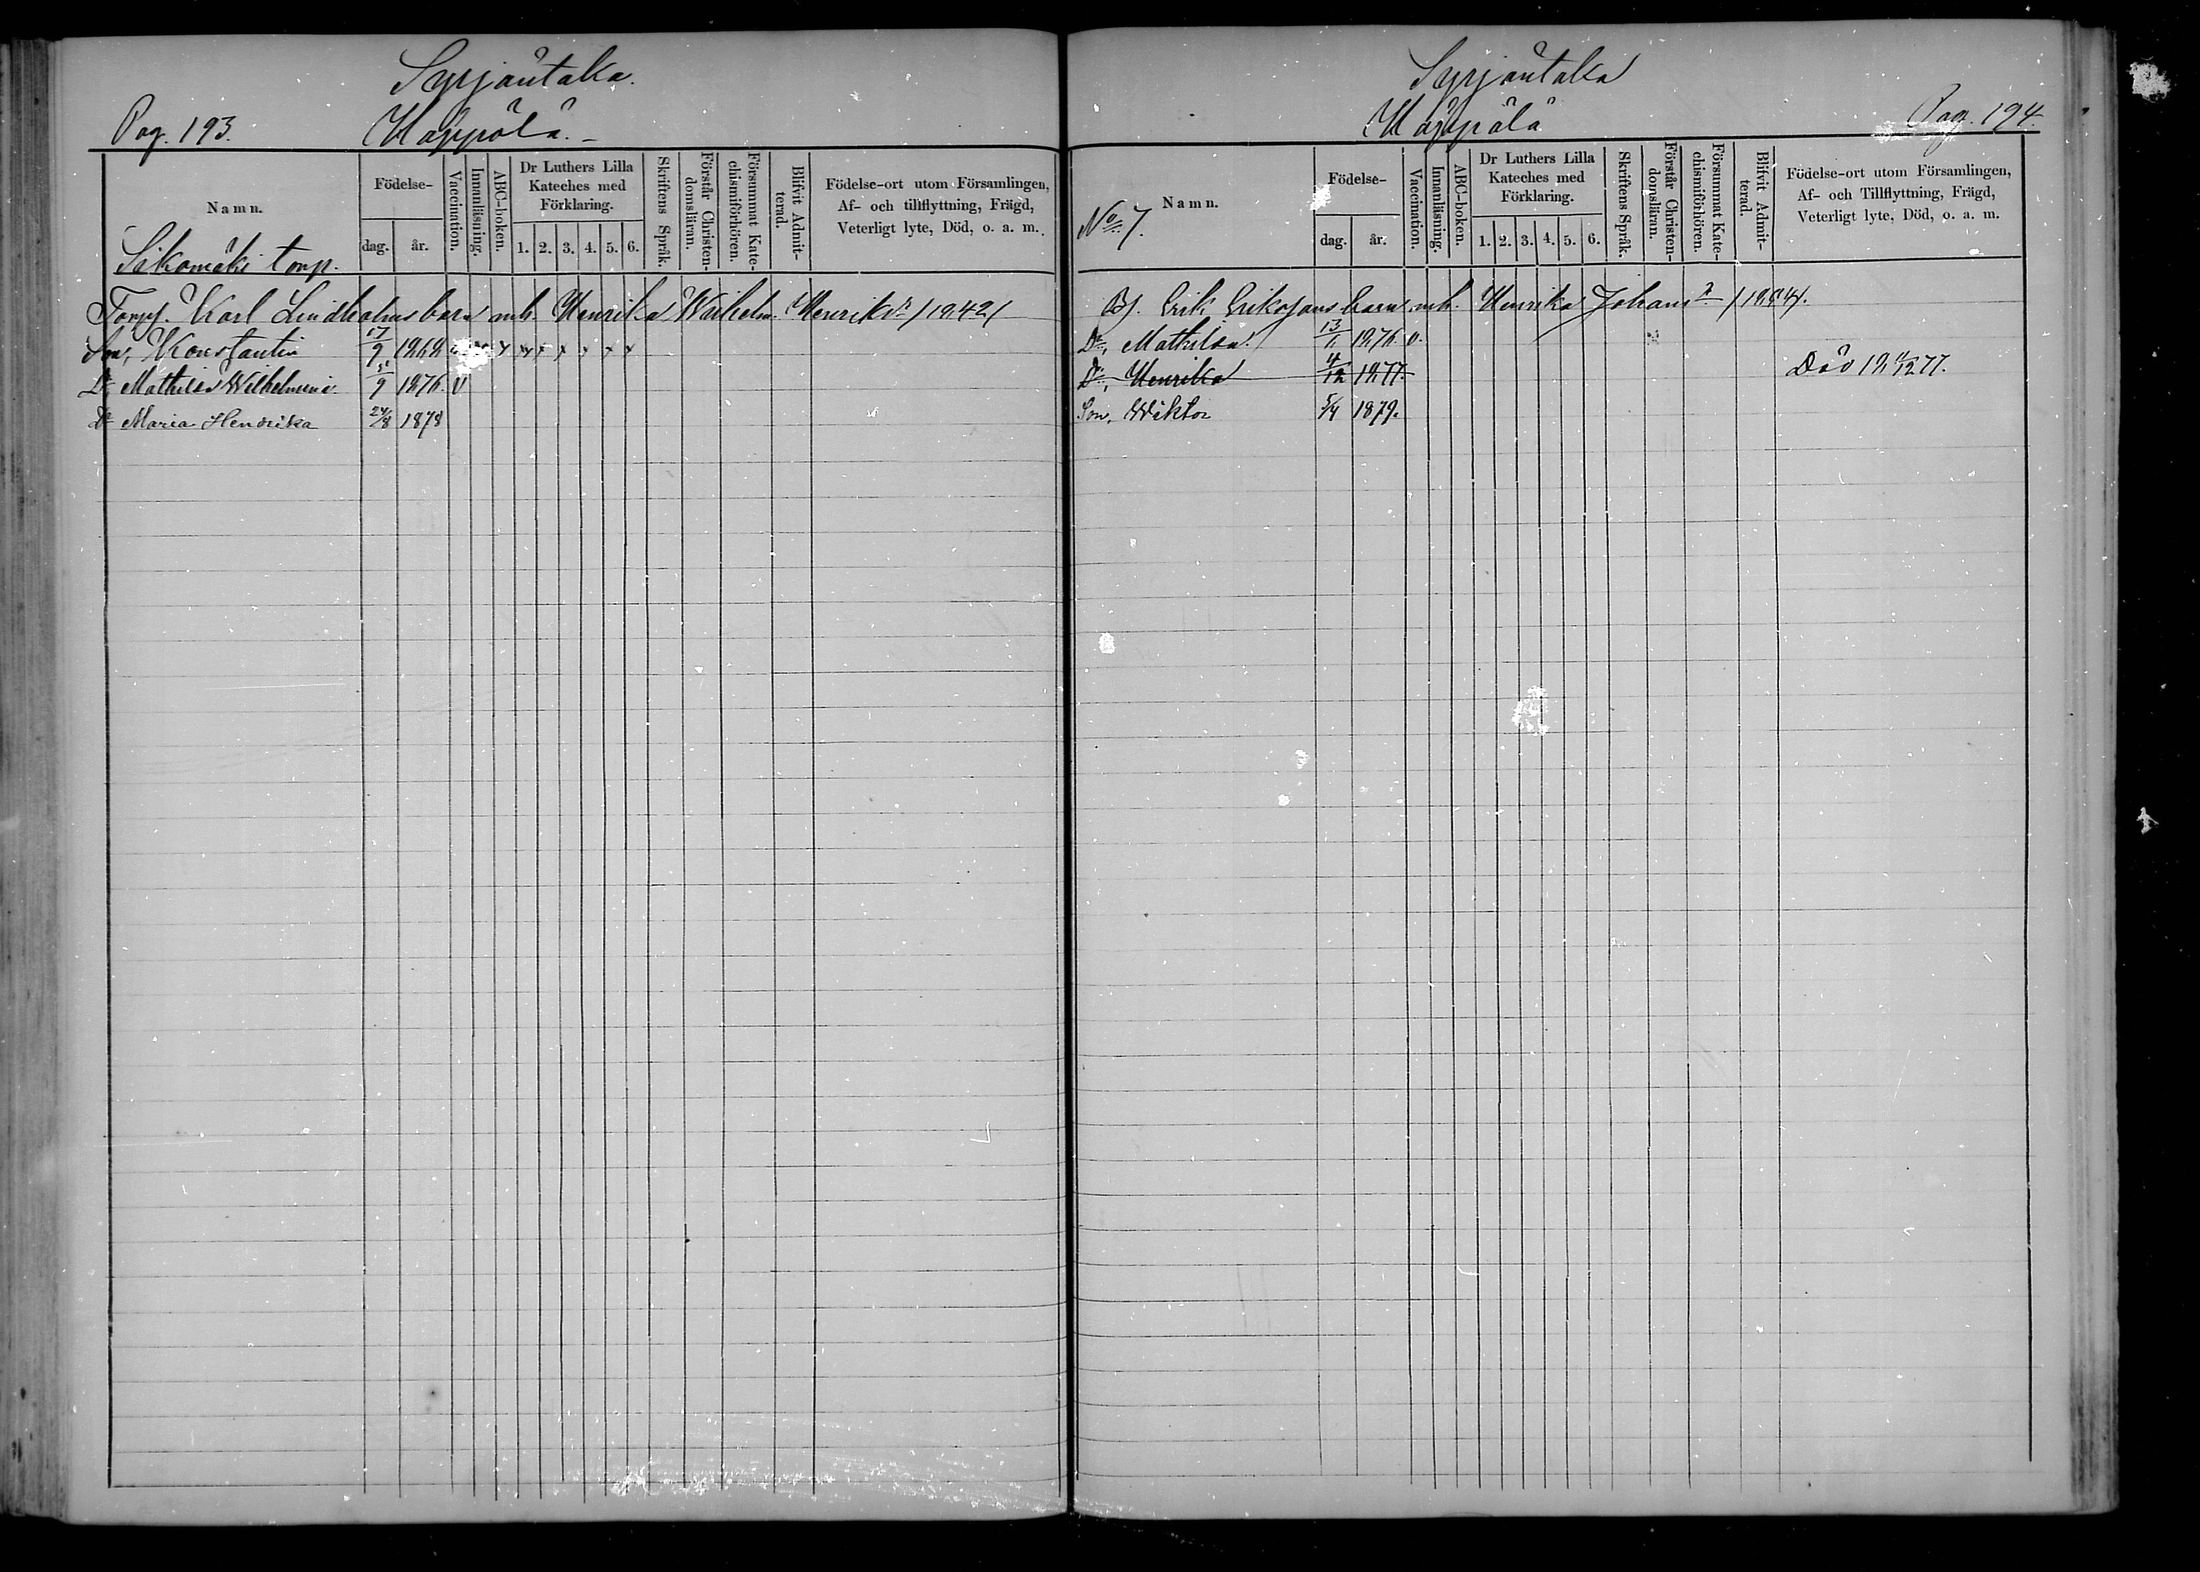 Syrjäntaka.
Pag. 193. Käppölä.
Namn. Födelse- dag. år. Vaccination. Innanläsning. ABC-boken. Dr Luthers Lilla Kateches med Förklaring. 1. 2. 3. 4. 5. 6. Skriftens Språk. Förstår Christendomsläran. Försummat Katechismiförhören. Blifvit Admitterad. Födelse-ort utom Församlingen, Af- och tillflyttning, Frägd, Veterligt lyte, Död, o. a. m.
Sikomäki torp.
Torp. Karl Lindholms barn mh. Henrika Wilhelm. Henriksdr /1842/
Son, Konstantin 17/9 1868 x x x x x x x
Dr Mathilda Wilhelmina 9 1876. v
Dr Maria Hendrika 24/8 1878
Syrjäntaka
Käppölä Pag. 194.
No 7. Namn. Födelse- dag. år. Vaccination. Innanläsning. ABC-boken. Dr Luthers Lilla Kateches med Förklaring. 1. 2. 3. 4. 5. 6. Skriftens Språk. Förstår Christendomsläran. Försummat Katechismiförhören. Blifvit Admitterad. Födelse-ort utom Församlingen, Af- och Tillflyttning, Frägd, Veterligt lyte, Död, o. a. m.
B). Erik Erikssons barn mh. Henrika Johansdr /1854/.
Dr, Mathilda 13/11 1876 v.
Dr, Henrika 4/12 1877. Död 19 4/12 77.
Son, Wiktor 5/4 1879.